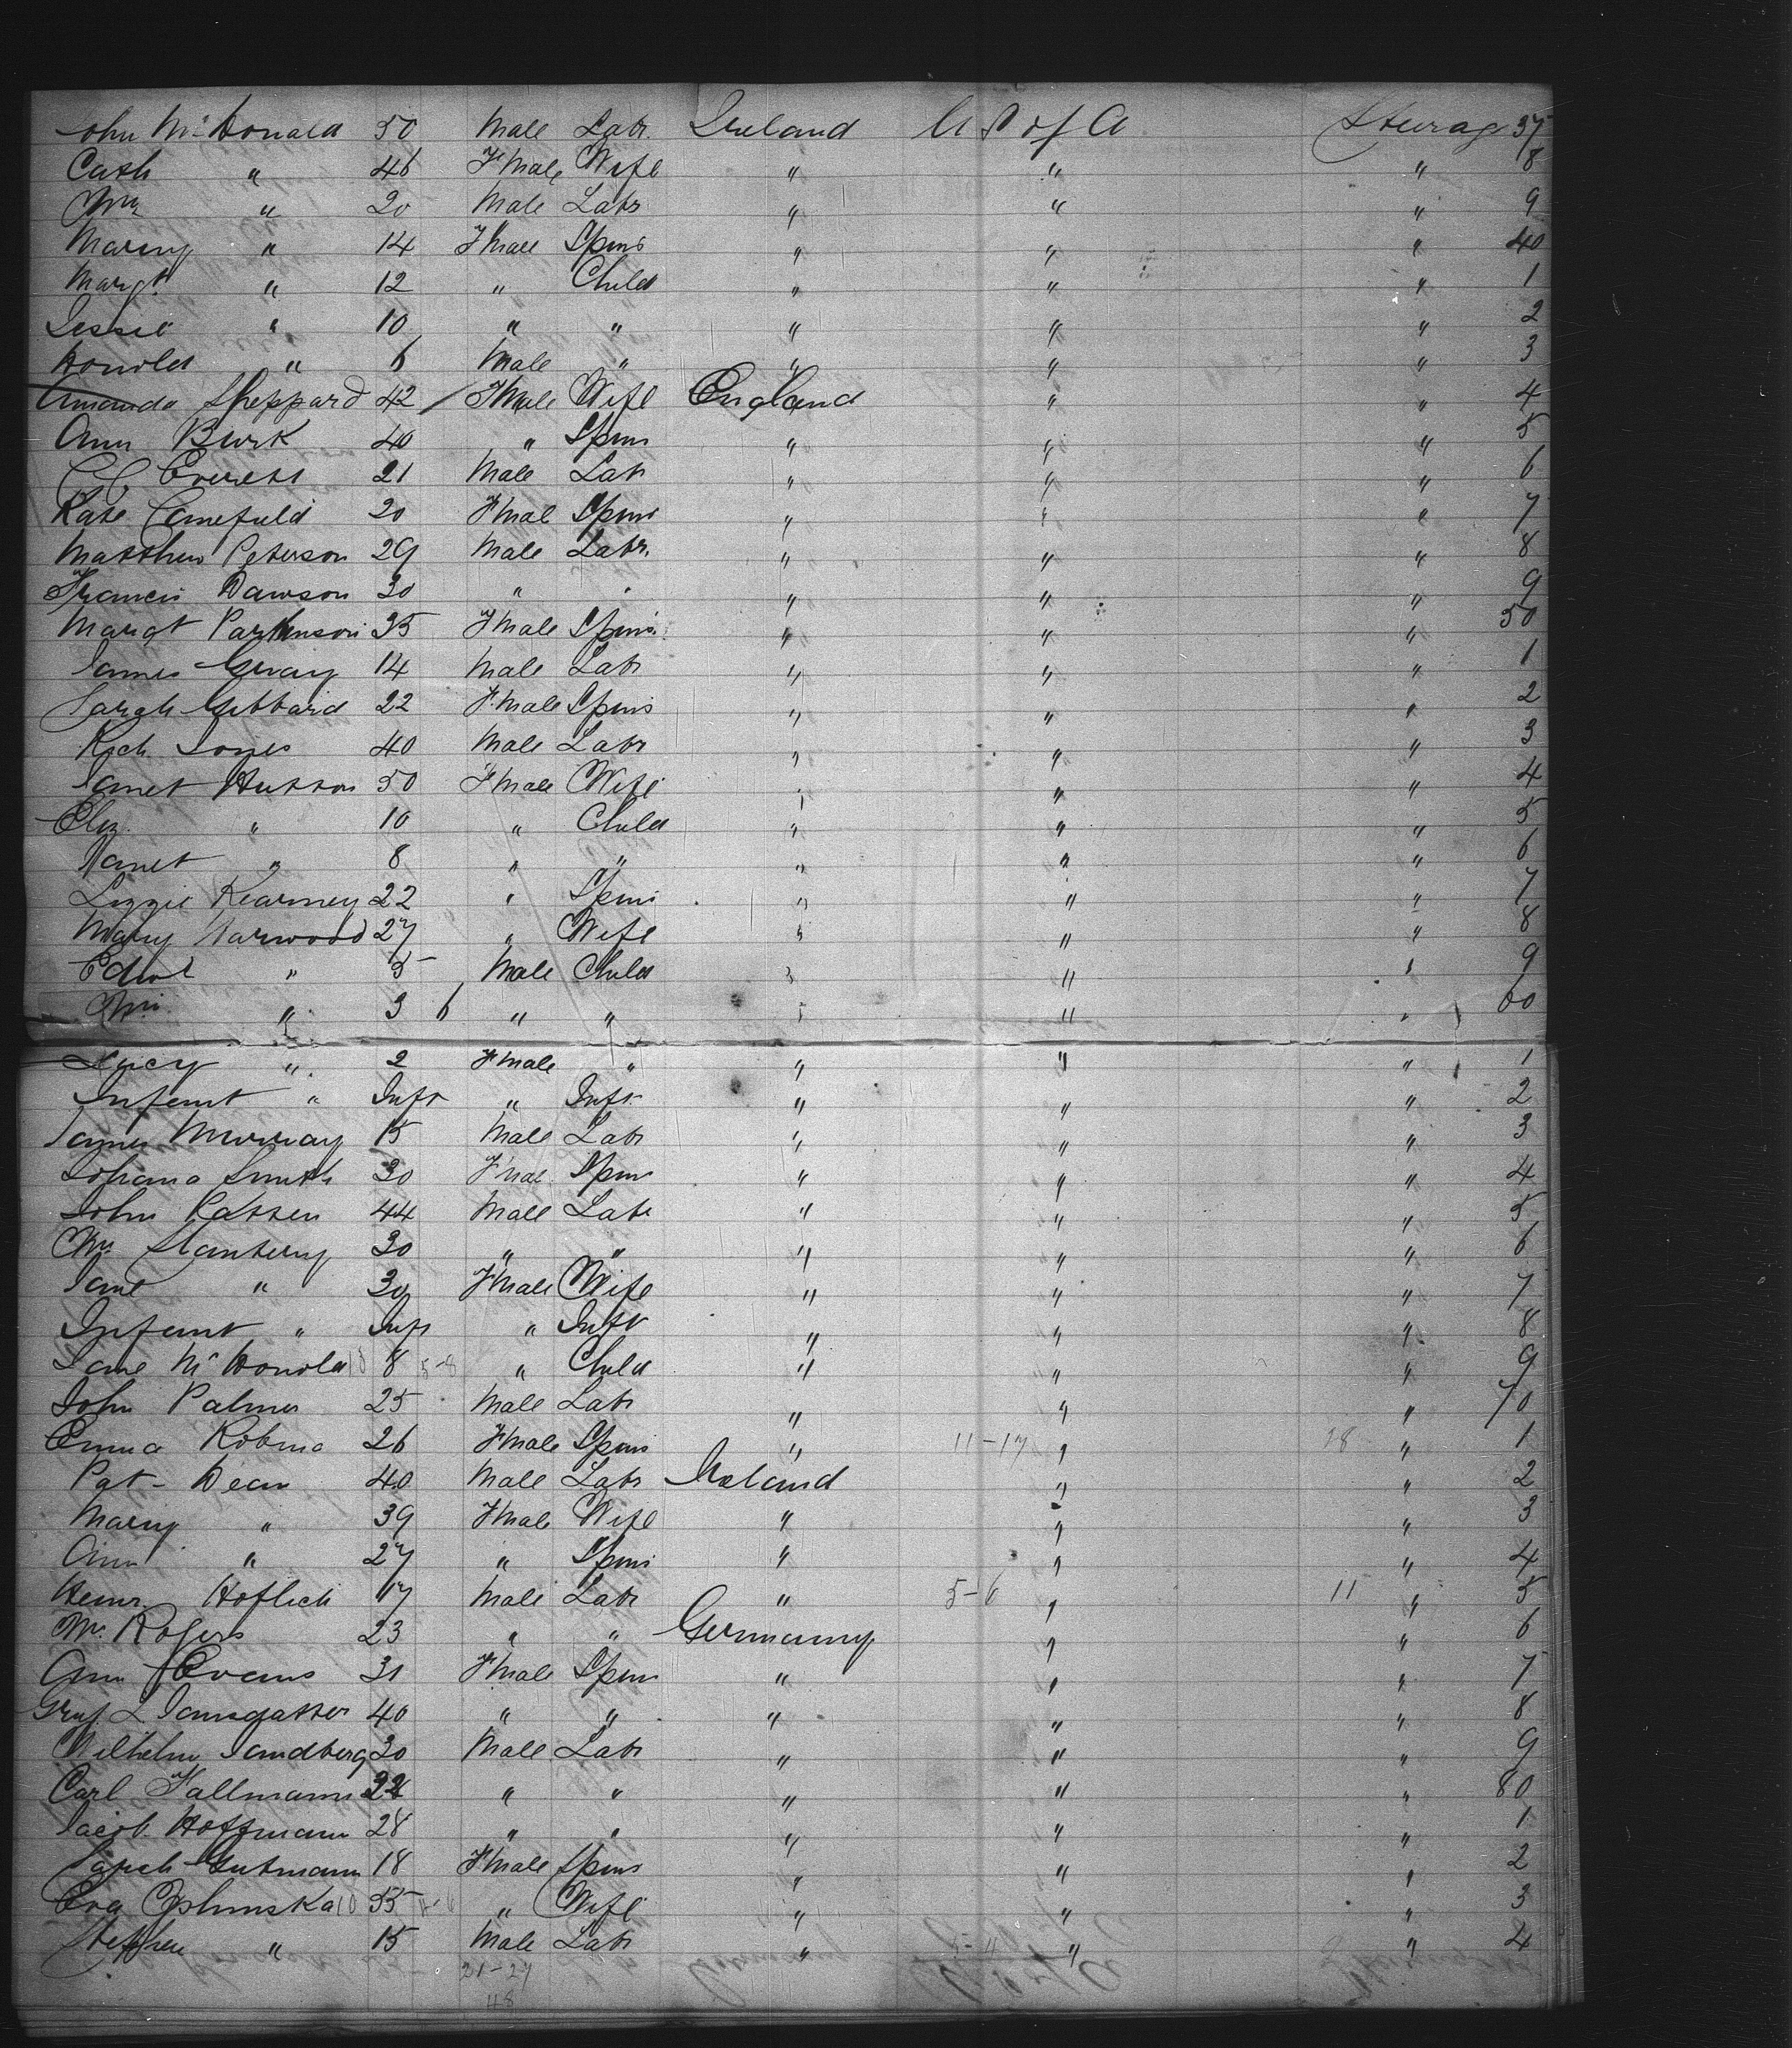 John McDonald 50 Male Labr. Ireland U S of A Steerag 37
Cath " 46 Fmale Wife " " " 8
Wm " 20 Male Labr " " " 9
Mary " 14 Fmale Spins " " " 40
Margt " 12 " Child " " " 1
Jessie " 10 " " " " " 2
Donold " 6 Male " " " " 3
Amanda Sheppard 42 / Fmale Wife England " " 4
Ann Burk 40 " Spins " " " 5
C C Everett 21 Male Lab " " " 6
Kate Canefield 20 Fmal Spins " " " 7
Matthew Peterson 29 Male Labr. " " " 8
Francis Dawson 30 " " " " " 9
Margt Parkinson 35 Fmale Spins " " " 50
James Gray 14 Male Labr " " " 1
Sarah Gibbard 22 Fmale Spins " " " 2
Rich Jones 40 Male Labr " " " 3
Janet Hutton 50 Fmale Wife " " " 4
Eliz. " 10 " Child " " " 5
Janet " 8 " " " " " 6
Lizzie Kearney 22 " Spins " " " 7
Mary Narwood 27 " Wife " " " 8
Edwd " 5 Male Child " " " 9
Wm " 3 6 " " " " " 60
Lucy " 2 Fmale " " " " 1
Infant " Inft " Inft " " " 2
James Murray 15 Male Labr " " " 3
Johana Smith 30 Fmal Spins " " " 4
John Patten 44 Male Labr " " " 5
Wm Stanbery 30 " " " " " 6
Jane " 30 Fmale Wife " " " 7
Infant " Inft " Inft " " " 8
Jane McDonold 10 8 5-8 " Child " " " 9
John Palmer 25 Male Labr " " " 70
Emma Robins 26 Fmale Spins " 11-17 " 28 " 1
Pat - Dean 40 Male Labr Ireland " " 2
Mary " 39 Fmale Wife " " " 3
Ann " 27 " Spins " " " 4
Heinr. Hoflich 17 Male Labr " 5-6 " 11 " 5
Wm Rogers 23 " " Germany " " 6
Ann Evans 31 Fmale Spins " " " 7
40 " " " " " 8
Wilhelm Sandberg 30 Male Labr " " " 9
Carl Fallmann " " " " " 80
Jacob Hoffmann 28 " " " " " 1
Sarah Gutmann 18 Fmale Spins " " " 2
Eva 10 35 " Wife " " " 3
Stephen " 15 Male Labr " 5-4 " " 4
21-27
48